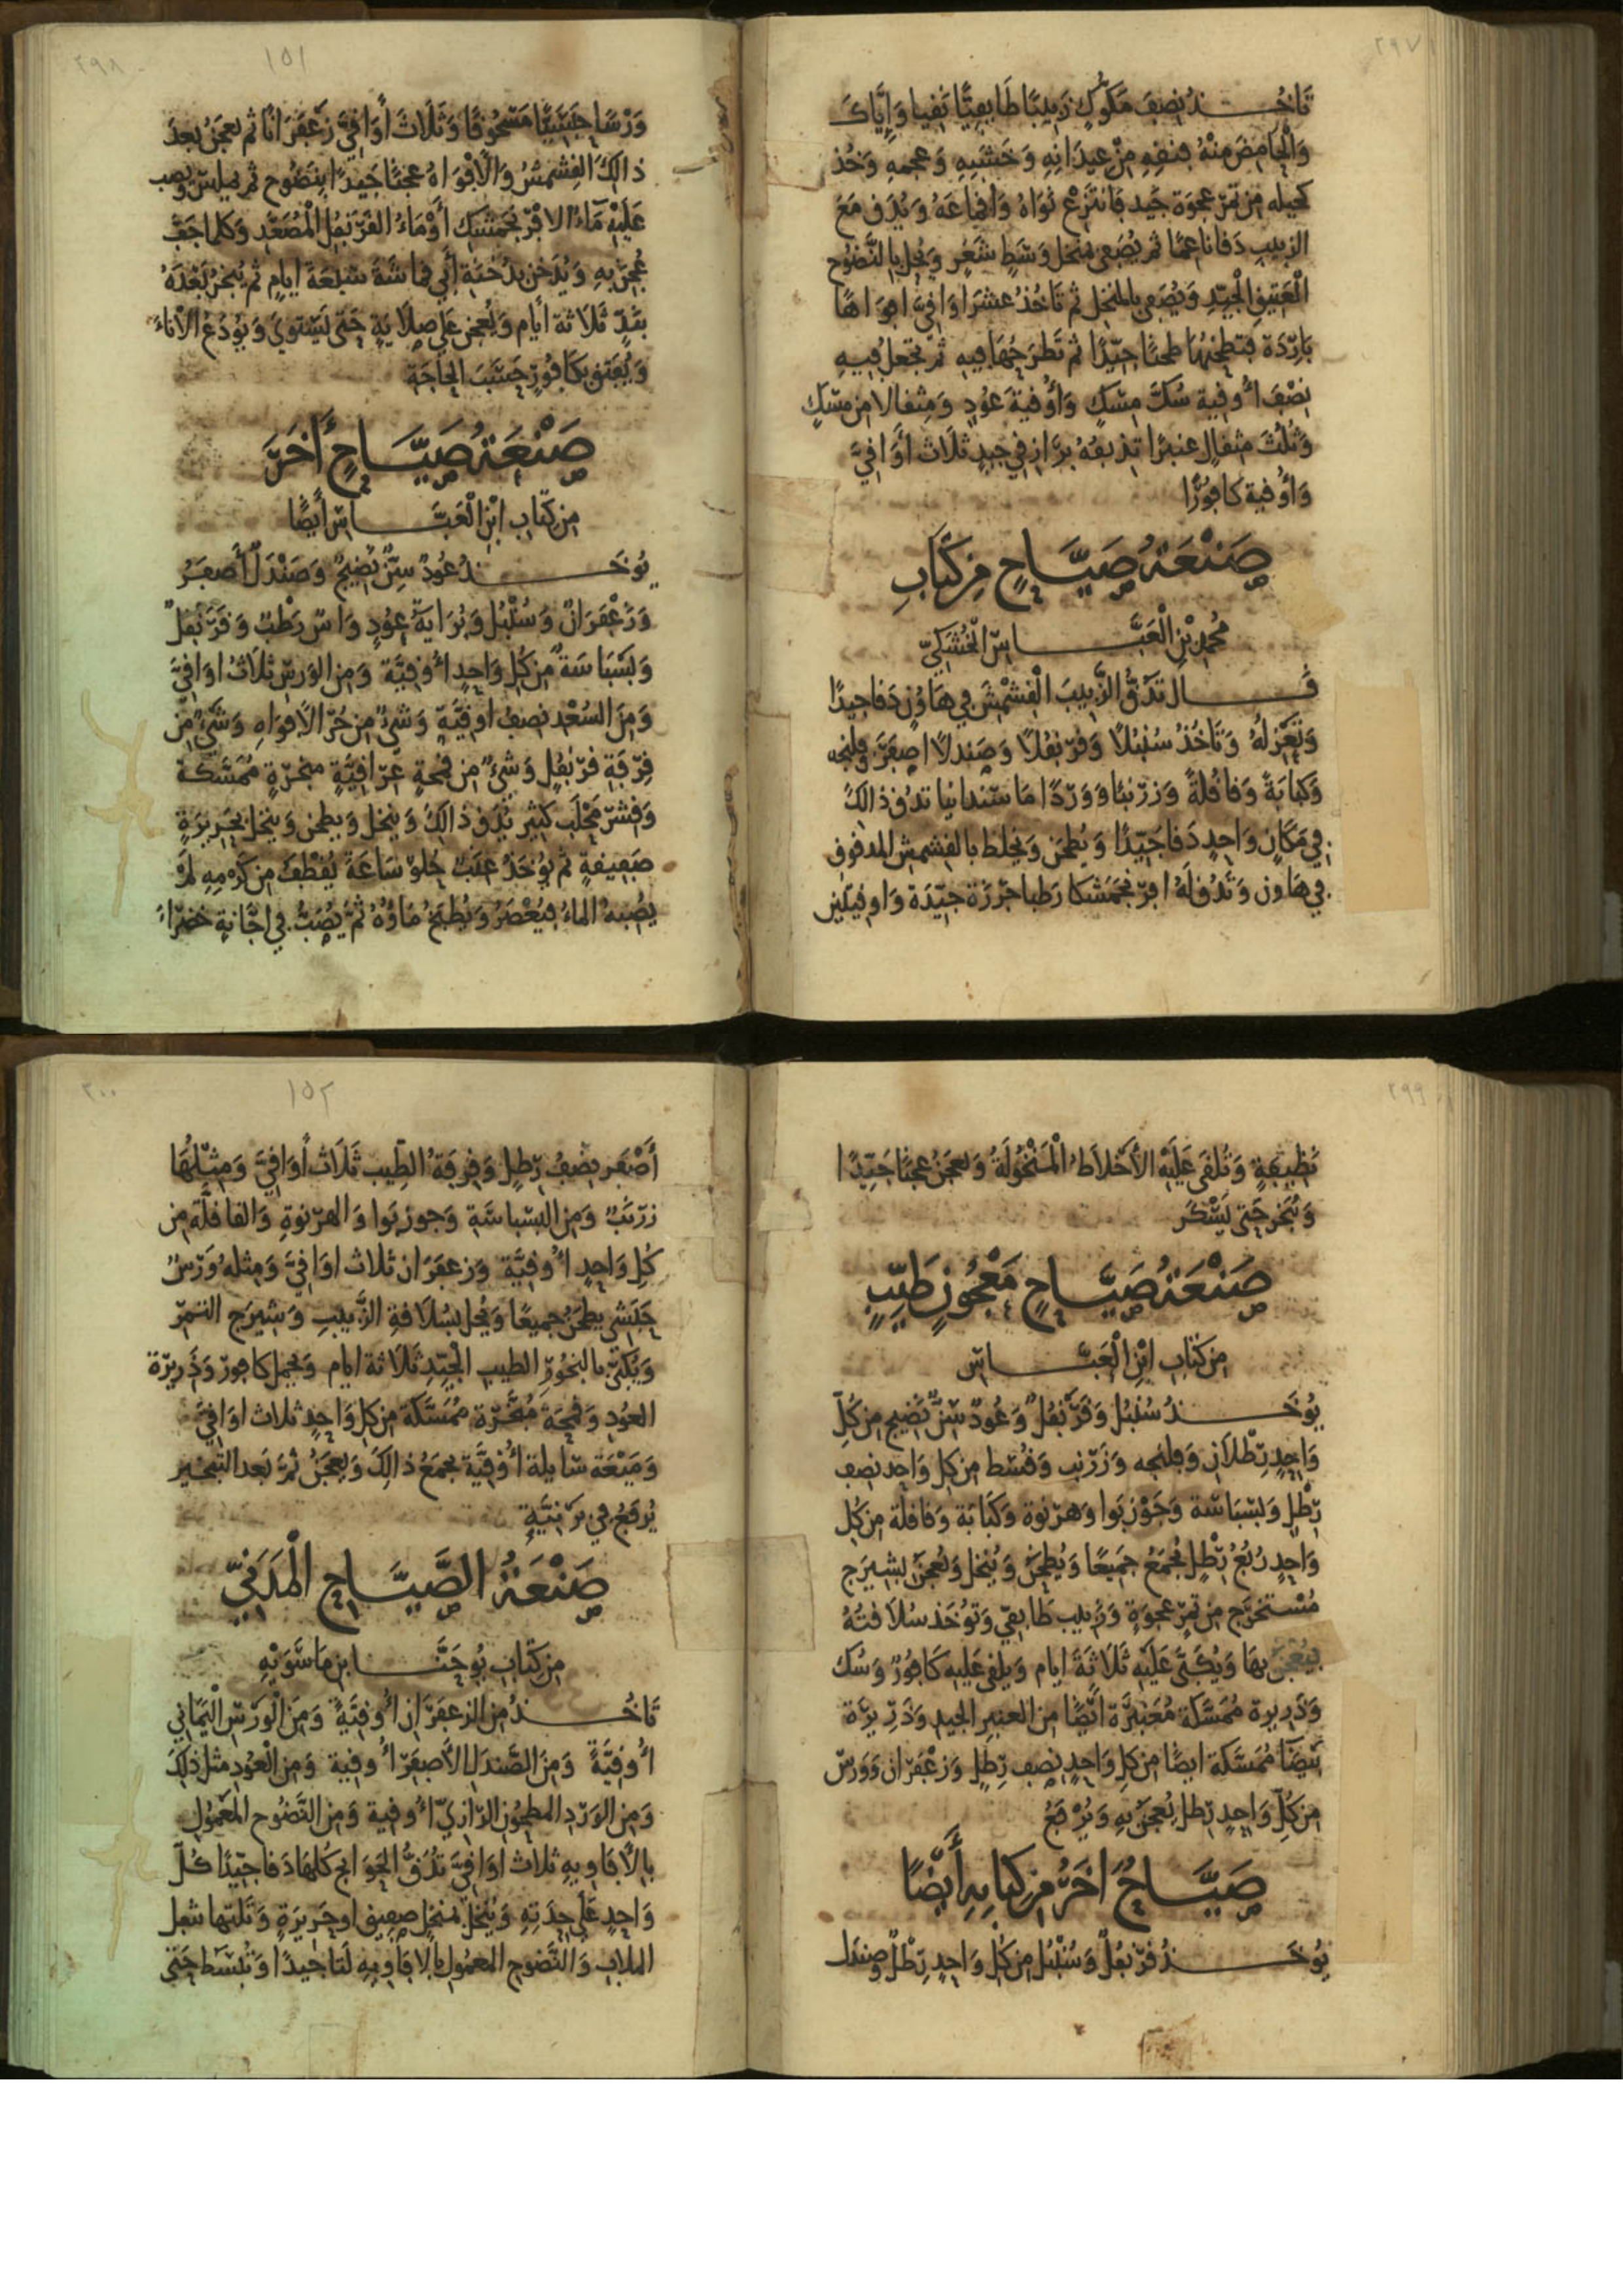 ٢٩٧
تَاخُــذُ نِصفَ مَكوُّكٍ زَبِيبًا طَايِفِيًّا نَقيا وَإِيَّاكَ
وَالْحَامِضَ مِنْهُ فنقِهِ مِنْ عِيدَانِهِ وَخَشَبِهِ وَعجمهِ وَخُذ
كيله مِن تَمْرِ عجوَة جَيد فَانتَزِعْ نَوَاهُ وَاقْمَاعَهُ وَيُدَق مَعَ
الزبيب دَقا ناعِمًا ثم يُصَفى بمنخل وَسَطٍ شَعَرٍ وَيُحل بِالنَّضُوح
الْعَتِيقِ الْجَيِّدِ وَيُصَفى بالمنخل ثم تَاخُذُ عشرَ اوَاقِيَّ افوَاهًا
بَارِدَة فتطحنهُا طحنًا جيّدًا ثم تَطرَحُهَا فِيهِ ثمّ تجعَلُ فِيهِ
نصْفَ اُوقية سُكَّ مِسْكٍ وَأوُقيةَ عَوُدٍ وَمِثقالا مِن مسْكٍ
وَثُلُثَ مثقالٍ عنبرًا تذيفُهُ برازقي جيدٍ ثَلَاث أوَاقِيَّ
وَأوُقية كَافُورًا
صَنْعَةُ صَيَّــاحٍ مِن كِتَابِ
مُحمد بْنِ الْعَبَّــاسِ الْخُشَكِيّ
قَــال تَدُقُّ الزَّبِيبَ الْقِشْمِشَ فِي هَاوُنٍ دَقا جيدًا
وَتَعْزِلُهُ وَتَاخُذُ سُنبُلًا وَقرَنفُلًا وَصَندلًا اصفَرَ وفلنجه
وَكبَابَةً وَقاقُلَةً وَزرْنبًا وَوَرْدًا مَاسَندانيا تدُق ذالكَ
في مَكَانٍ وَاحِدٍ دَقا جَيّدًا وَيُطحَن وَيُخلط بالقشمِش المدقوق
في هَاون وَتَدُق لَهُ افرَنجَمُشكا رَطبا حُزْرَة جيّدَة وَاوقيتين
٢٩٨
١٥١
وَرْسًا حَبَشِيًّا مَسْحُوقًا وَثَلَاثَ أوَاقِيَّ زَعْفَرَانًا ثم يعجَنُ بعدَ
ذالكَ القِشمشُ وَالْأَفْوَاهُ عجنًا جَيدًا بِنَضُوح ثم يملس ويصب
عَلَيْهِ مَآءُ الافرَنجَمشك أَوْ مَاءُ القَرَنفُل الْمُصَعَّد وَكلما جَفَّ
عُجِنَ بهِ وَيُدَخن بدُخنَةِ أَبي قماشَةَ سَبْعَةَ أيامٍ ثم يُبَخَّرُ بَعْدَهُ
بنَدّ ثَلَاثة أيَّام وَيُعْجن عَلى صلايَةٍ حَتى يَسْتوي وَيُودَعُ الأنآءَ
وَيُفتق بكَافُورٍ حَسَبَ الحَاجَة
صَنْعَةُ صَيَّــاحٍ أَخَرَ
مِن كتَاب ابْنِ الْعَبَّــاسِ أَيضًا
يُوخَــذ عُودٌ سِنٌّ نَضِيجٌ وَصَنْدَلٌ أَصفَرُ
وَزَعْفَرَانٌ وَسُنْبُل وَبُرَايَةُ عوُدٍ وَاس رَطْبٌ وَقَرَنفُلٌ
وَبَسْبَاسَةٌ مِن كل وَاحِدٍ أُوقِيَّة وَمِن الوَرسِ ثلَاثُ اوَاقِيَّ
وَمِنَ السُعْد نِصفُ اوقيَّةٍ وَشيْءٌ مِن حُرّ الأفوَاهِ وَشَيْءٌ مِن
قِرْفَةِ قَرَنفُلٍ وَشَيْءٌ مِن قمحَةٍ عِرَاقِيَّةٍ مبخرَةٍ مُمَسَّكَة
وَقشر مَحْلَب كثير يُدَق ذالكَ وَينخل وَيطحن وَينخل بحَرِيرَةٍ
صَفِيقةٍ ثم يُوخَذُ عنَبٌ حُلوٌ سَاعَةَ يُقْطفُ مِن كَرْمِهِ لَمْ
يُصِبهُ الماءُ فيُعْصَرُ وَيُطبَخُ مَاؤُهُ ثمَّ يُصَبُّ في اجّانةٍ خضرَاءَ
٢٩٩
نَظِيفةٍ وَتُلقَى عَلَيْهِ الأَخْلَاطُ الْمَنْخُولَةُ وَيعجَنُ عَجنًا جَيِّدًا
وَيُبَخر حَتى يَسْكَرَ
صَنْعَةُ صَيَّــاحٍ مَعْجُونٍ طَيِّبٍ
مِن كتابِ ابْنِ الْعَبَّــاسِ
يُوخَــذُ سُنْبُل وَقَرَنفُلٌ وَعُودٌ سِنٌّ نَضِيج مِن كُلِّ
وَاحِدٍ رِطْلَانِ وَفلنجه وَزَرْنب وَقُسْط مِن كل وَاحِد نصف
رِطْلٍ وَبسْبَاسَة وَجَوْزبَوا وَهَرْنوة وَكَبَابَة وَقاقلَة مِن كُل
وَاحِدٍ رُبْعُ رِطْلٍ يُجمَعُ جَمِيعًا وَيُطحَن وَيُنخل وَيُعجَن بشيرَج
مُسْتخرَج مِن تَمْرِ عجوَةٍ وَزَبيب طَايِفيّ وَتُوخذ سُلَافتُهُ
فيُعْجن بهَا وَيُكَبَّى عَلَيْهِ ثَلَاثَةَ ايام وَيلقى عَليهِ كَافُورٌ وَسُك
وَذَريرة مُمَسَّكَة مُعَنبَرَة ايْضًا مِن العنبرِ الجيد وَذَرِيرَة
بَيْضَا مُمَسَّكة ايضًا مِن كل وَاحدٍ نِصف رِطلٍ وَزَعْفَرَان وَوَرس
مِن كُلِّ وَاحِدٍ رِطل يُعجَنُ بهِ وَيُرفَعُ
صَيَّــاحُ اَخَرُ مِن كتابِهِ أَيْضًا
يُوخَــذُ قَرَنفُلٌ وَسُنْبُل مِن كُل وَاحِدٍ رِطْلٌ وصندل
٣٠٠
١٥٢
أَصْفَر نِصْفُ رِطلٍ وَقِرفَةُ الطِّيب ثَلَاث أَوَاقِيَّ وَمِثْلُهَا
زرْنَبٌ وَمِن البسبَاسَةِ وَجوزبَوا وَالهرْنوةِ وَالقاقلَّةِ مِن
كُل وَاحِدٍ أُوقِيَّة وَزعفَرَان ثلاث اوَاقِيَّ وَمِثلهُ وَرْسٌ
حَبَشي يطحَنُ جميعًا وَيُحل بسُلَافةِ الزَّبيبِ وَشيرَج التمْر
وَيُكَبَّى بالبخُور الطيب الْجَيِّدِ ثَلَاثة ايام وَيُجعل كافور وَذَرِيرَة
العوُد وَقمحَة مُبَخَّرَة مُمَسَّكَة مِن كل وَاحِدٍ ثلاث اوَاقِيَّ
وَمَيْعَة سَايلة أُوقِيَّة يجمَعُ ذالِكَ وَيعجَنُ ثمَّ بَعد التبخير
يُرفَعُ في بَرْنيَّةٍ
صَنْعَةُ الصَّيَّــاحِ الْمَدَنِيّ
مِن كتَاب يُوحَنَّــا بن مَاسَّوَيْهِ
تَاخُــذُ مِن الزعفَرَانِ أُوقِيَّةً وَمِنَ الْوَرسِ الْيَمَانِي
أُوقِيَّةً وَمِنَ الصَّندَلِ الأصفَرِ أُوقية وَمِن الْعوُدِ مثل ذلكَ
وَمِن الوَرْدِ المطحُونِ الرّازيِّ أُوقية وَمِن النَّضُوح المَعْمُول
بالأَفَاويه ثلاث اوَاقِيَّ تدُقُّ الحَوَايج كلهَا دَقا جَيّدًا كُلّ
وَاحِدٍ عَلى حِدَتِهِ وَيُنخلُ بمنخلٍ صفِيق اوحَرِيرَةٍ وَتَلتها بثفل
الملابِ وَالنَّضوحِ المعمُول بالأفَاويهِ لتًا جيدًا وَتُبسَط حَتى